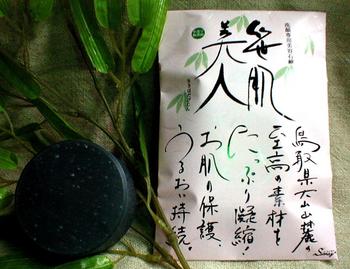 洗顔専用美容石鹸
笹肌
美人
鳥取県大山山麓、
至高の素材を
たっぷり凝縮!
お肌の保護
うるおい持続。